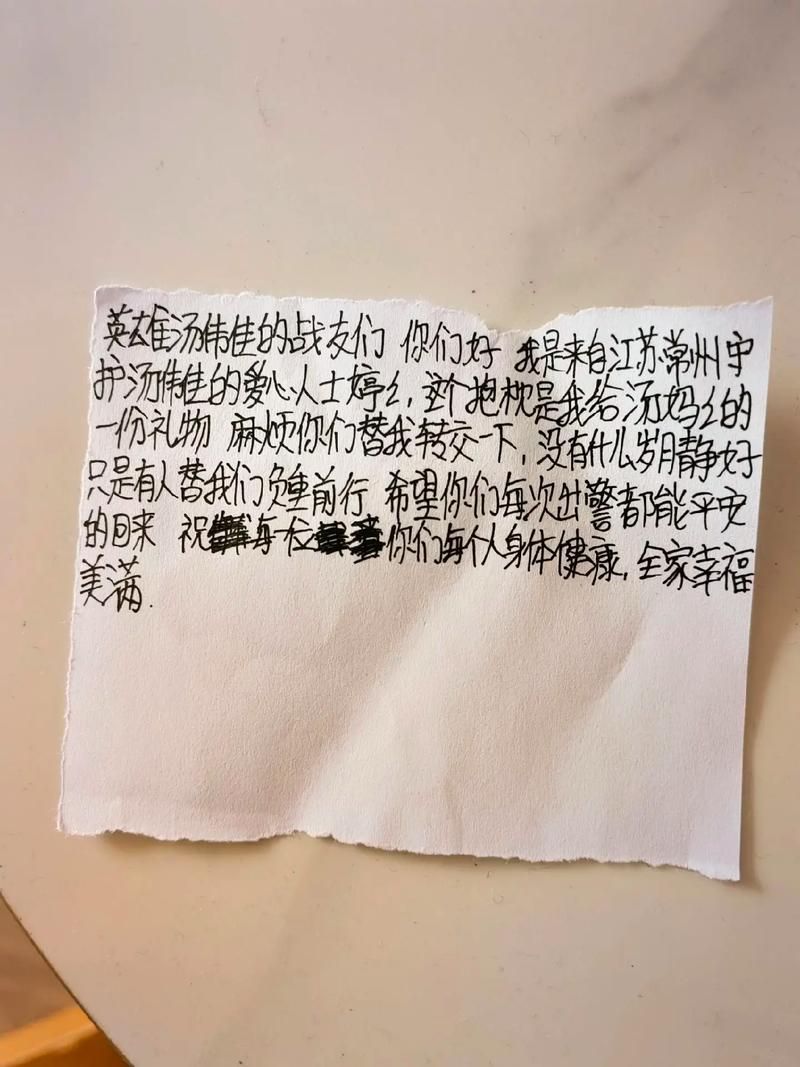 英雄汤伟佳的战友们 你们好 我是来自江苏常州守
护汤伟佳的爱心人士婷么,这个抱枕是我给汤妈么的
一份礼物 麻烦你们替我转交一下,没有什么岁月静好
只是有人替我们负重前行 希望你们每次出警都能平安
的回来 祝每一位你们每个人身体健康,全家幸福
美满.